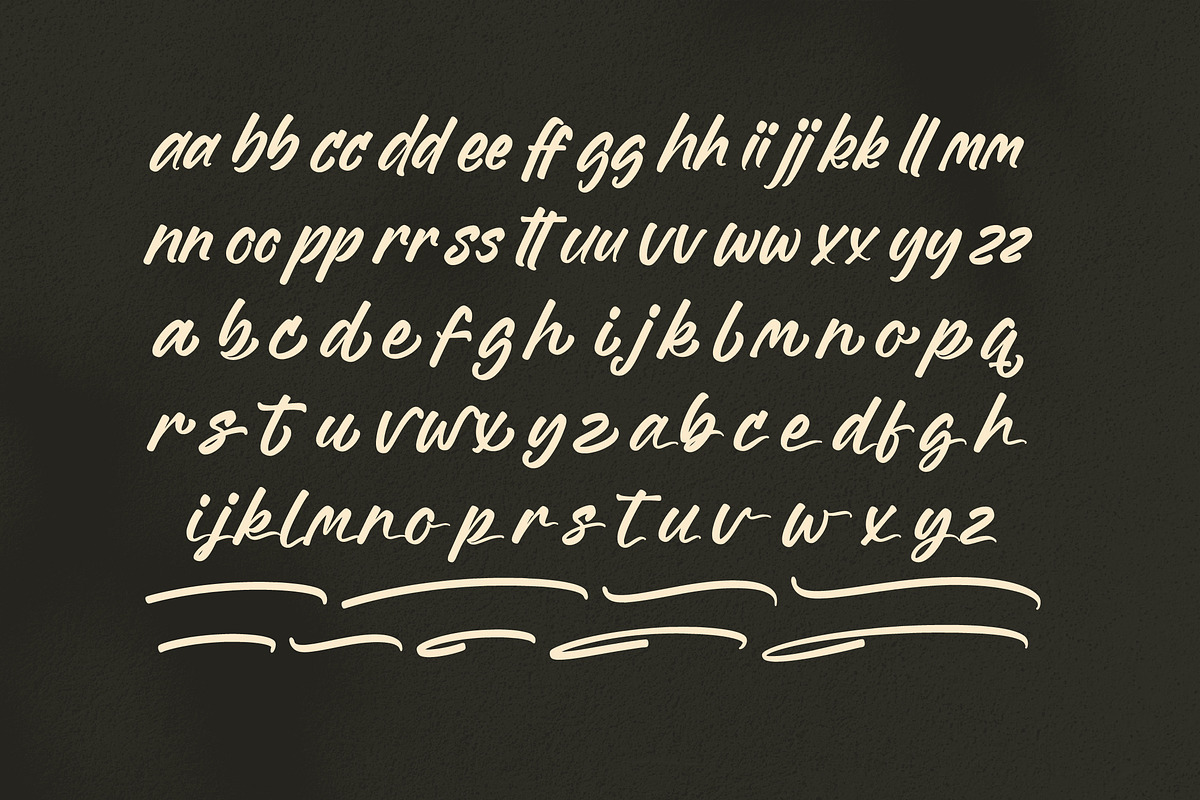 aa bb cc dd ee ff gg hh ii jj kk ll mm
nn oo pp rr ss tt uu vv ww xx yy zz
a b c d e f g h i j k l m n o p q
r s t u v w x y z a b c e d f g h
i j k l m n o p r s t u v w x y z